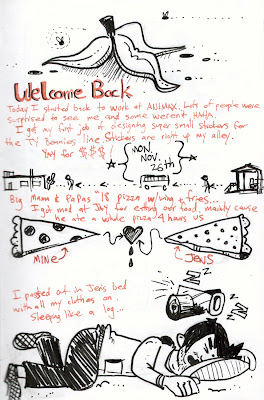 Welcome Back
Today I started back to work at ANIMAX. Lots of people were
surprised to see me and some werent, HAHA.
I got my first job of designing super small stickers for
the TY Bennies line. Stickers are right up my alley.
Yay for $$$!
MON.
NOV.
26th
Big Mama & PaPas "18 pizza w/wing + fries...
I got mad at Jay for eating our food, mainly cause
he ate a whole pizza 4 hours us
MiNe
JENS
I passed out in Jens bed
with all my clothes on
Sleeping like a log...
Z
Z
Z